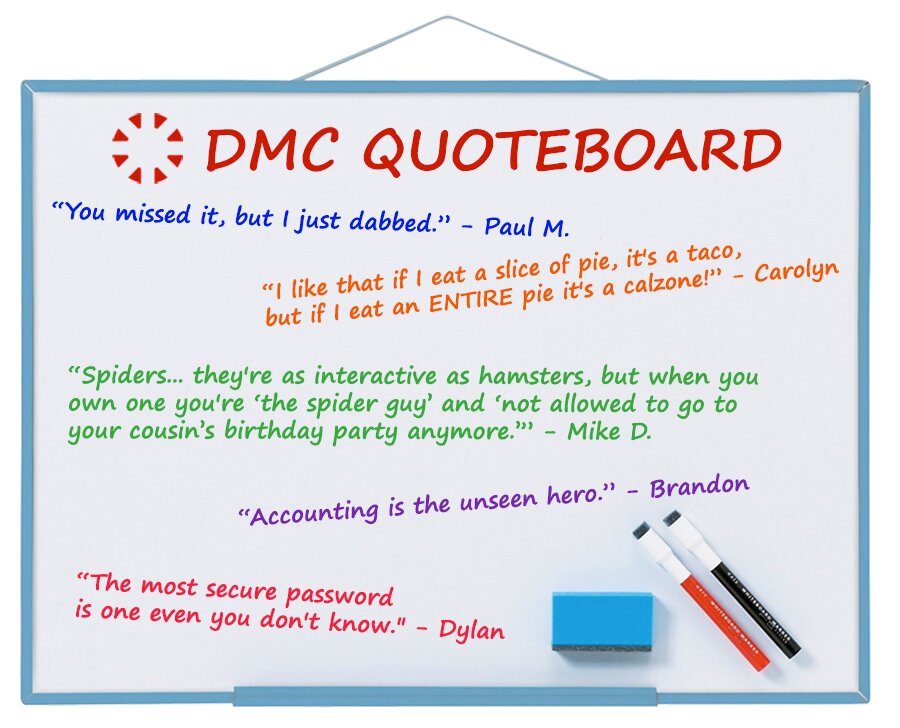 DMC QUOTEBOARD
“You missed it, but I just dabbed.” - Paul M.
“I like that if I eat a slice of pie, it's a taco,
but if I eat an ENTIRE pie it's a calzone!” - Carolyn
“Spiders... they're as interactive as hamsters, but when you
own one you're ‘the spider guy’ and ‘not allowed to go to
your cousin’s birthday party anymore.”’ - Mike D.
“Accounting is the unseen hero.” - Brandon
“The most secure password
is one even you don't know." - Dylan
WHITEBOARD MARKER
WHITEBOARD MARKER